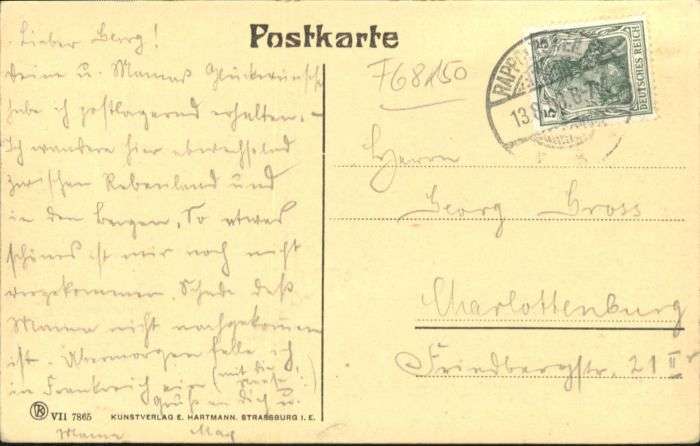 Lieber Georg!
Deine u. Mamas Glückwünsche
habe ich postlagernd erhalten. –
Ich wandere hier abwechselnd
zwischen Rebenland und
in den Bergen. So etwas
schönes ist mir noch nicht
vorgekommen. Schade daß
Mama nicht nachgekommen
ist. Übermorgen falle ich
in Frankreich ein (mit die
Gruß an dich u.
Mama Max
VII 7865 KUNSTVERLAG E. HARTMANN, STRASSBURG I. E.
Postkarte
F68150
DEUTSCHES REICH
5 5
13.8.
Herrn
Georg Gross
Charlottenburg
Friedbergstr. 21 II r